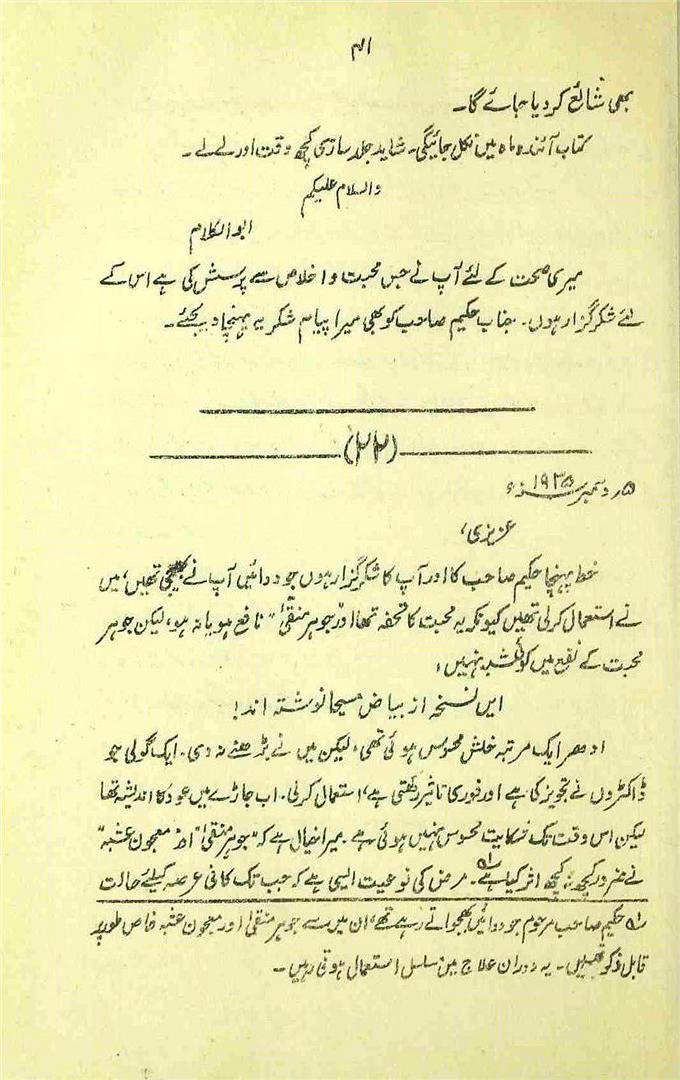 ۴۱
بھی شائع کر دیا جائے گا۔
کتاب آئندہ ماہ میں نکل جائیگی۔ شاید جلد سازی کچھ وقت اور لے لے۔
والسلام علیکم
ابوالکلام
میری صحت کے لئے آپ نے جس محبت و اخلاص سے پرسش کی ہے اس کے
لئے شکر گزار ہوں۔ جناب حکیم صاحب کو بھی میرا پیام شکریہ پہنچا دیجئے۔
(۲۲)
۵ر دسمبر ۱۹۳۵ء
عزیزی،
خط پہنچا حکیم صاحب کا اور آپ کا شکر گزار ہوں جو دوائیں آپ نے بھیجی تھیں، میں
نے استعمال کر لی تھیں کیونکہ یہ محبت کا تحفہ تھا اور "جوہر منقیٰ" نافع ہو یا نہ ہو، لیکن جوہر
محبت کے نفع میں کوئی شبہ نہیں؛
ایں نسخہ از بیاض مسیحا نوشتہ اند!
ادھر ایک مرتبہ خلش محسوس ہوئی تھی، لیکن میں نے بڑھنے نہ دی۔ ایک گولی جو
ڈاکٹروں نے تجویز کی ہے اور فوری تاثیر رکھتی ہے، استعمال کر لی۔ اب جاڑے میں عود کا اندیشہ تھا
لیکن اس وقت تک شکایت محسوس نہیں ہوئی ہے۔ میرا خیال ہے کہ "جوہر منقیٰ" اور "معجون عشبہ"
نے ضرور کچھ نہ کچھ اثر کیا ہے۔ مرض کی نوعیت ایسی ہے کہ جب تک کافی عرصہ کیلئے حالت
حکیم صاحب مرحوم جو دوائیں بھجواتے رہے تھے، ان میں سے جوہر منقیٰ اور معجون عشبہ خاص طور پر
قابل ذکر تھیں۔ یہ دوران علاج میں مسلسل استعمال ہوتی رہیں۔